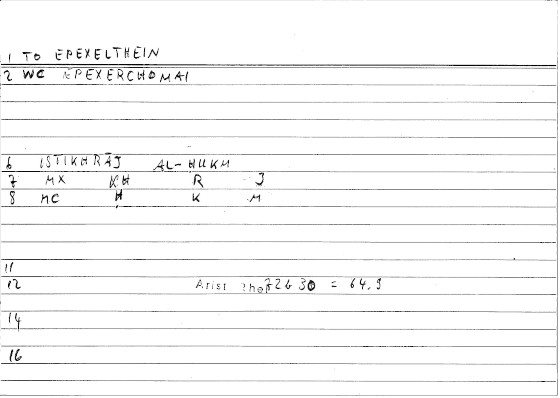 1 TO EPEXELTHEIN
2 WC EPEXERCHOMAI
6 ISTIKHRĀJ AL-HUKM
7 MX KH R J
8 MC H K M
11
12 Arist Rhet 72b30 = 64,9
14
16